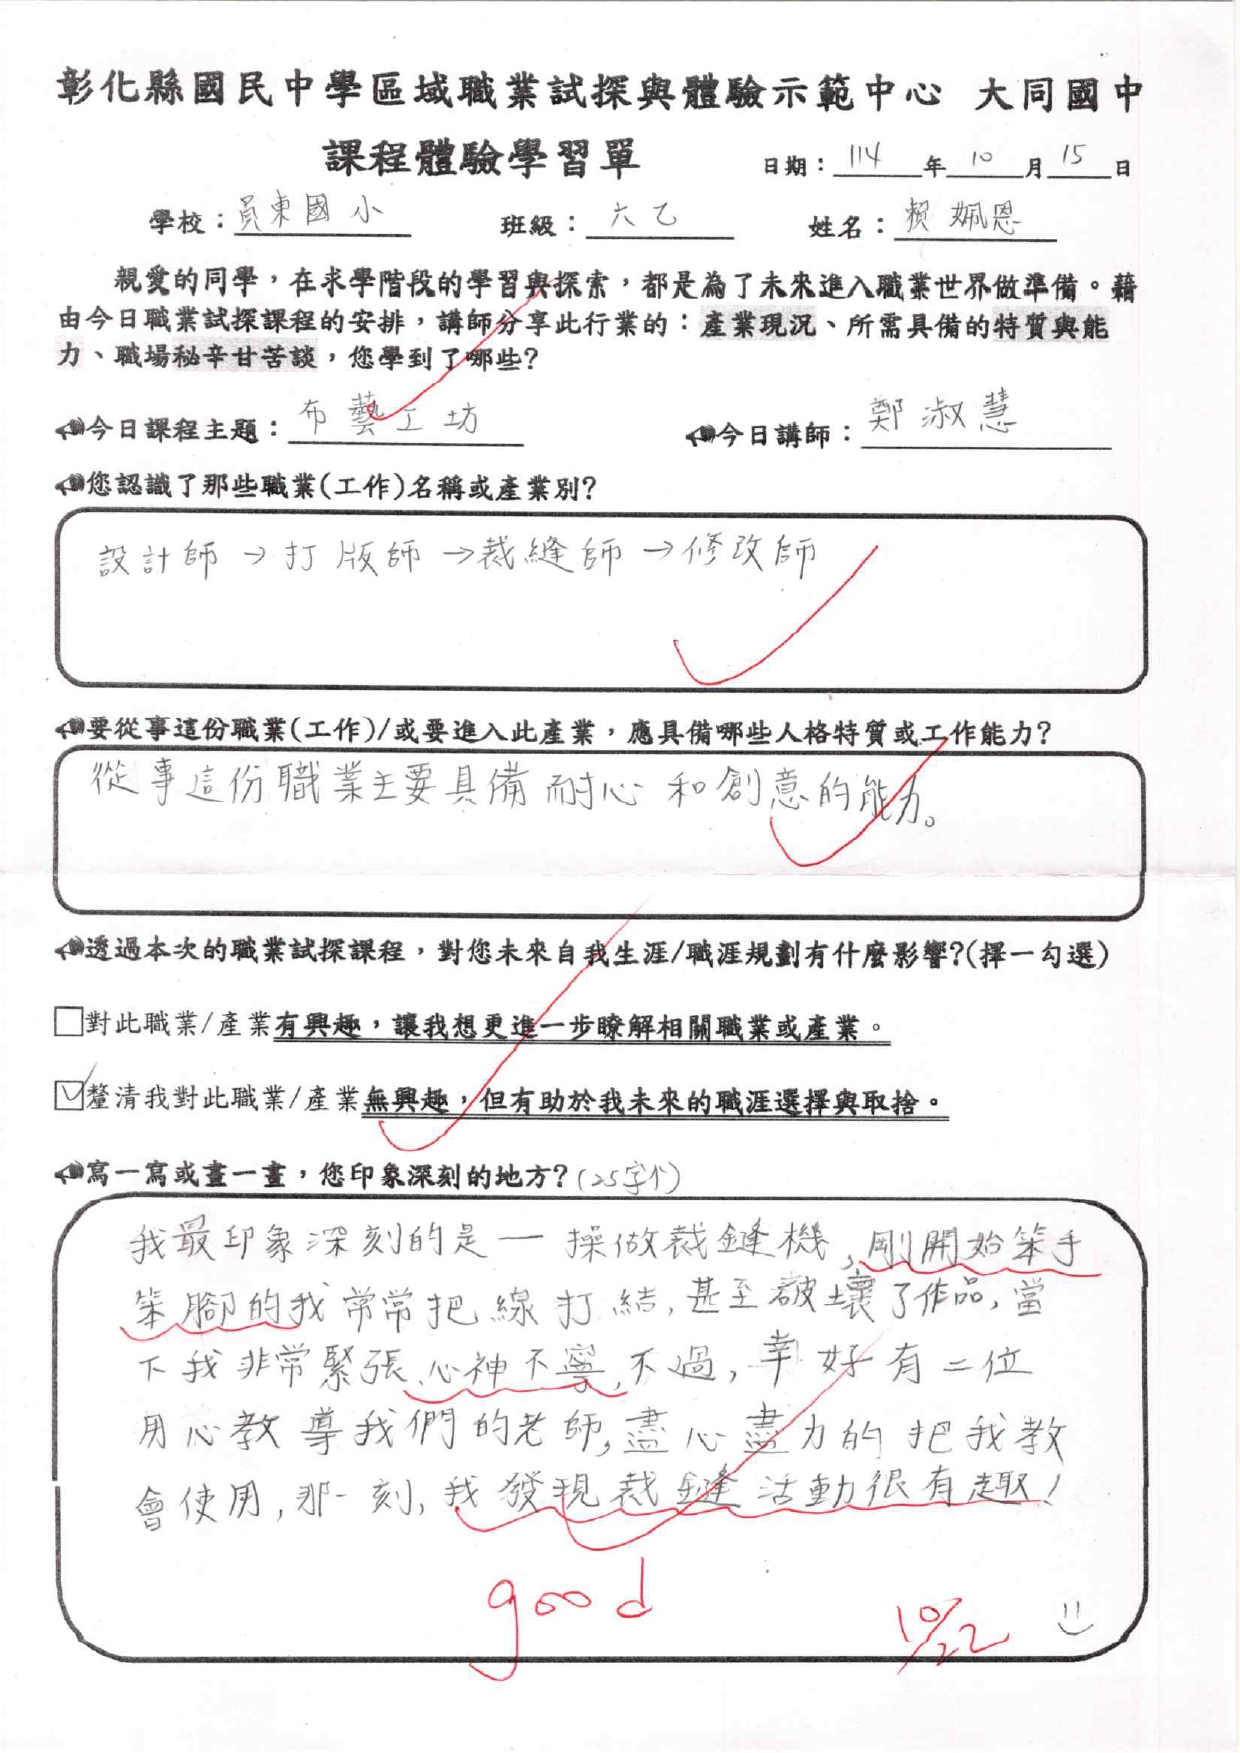 彰化縣國民中學區域職業試探與體驗示範中心 大同國中
課程體驗學習單 日期：114年10月15日
學校：員東國小 班級：六乙 姓名：賴姵恩
親愛的同學，在求學階段的學習與探索，都是為了未來進入職業世界做準備。藉
由今日職業試探課程的安排，講師分享此行業的：產業現況、所需具備的特質與能
力、職場秘辛甘苦談，您學到了哪些?
今日課程主題：布藝工坊 今日講師：鄭淑慧
您認識了那些職業(工作)名稱或產業別?
設計師→打版師→裁縫師→修改師
要從事這份職業(工作)/或要進入此產業，應具備哪些人格特質或工作能力?
從事這份職業主要具備耐心和創意的能力。
透過本次的職業試探課程，對您未來自我生涯/職涯規劃有什麼影響?(擇一勾選)
□對此職業/產業有興趣，讓我想更進一步瞭解相關職業或產業。
☑釐清我對此職業/產業無興趣，但有助於我未來的職涯選擇與取捨。
寫一寫或畫一畫，您印象深刻的地方?(25字个)
我最印象深刻的是一操做裁鏠機，剛開始笨手
笨腳的我常常把線打結，甚至破壞了作品，當
下我非常緊張、心神不寧，不過，幸好有二位
用心教導我們的老師，盡心盡力的把我教
會使用，那一刻，我發現裁鏠活動很有趣！
good
10/22